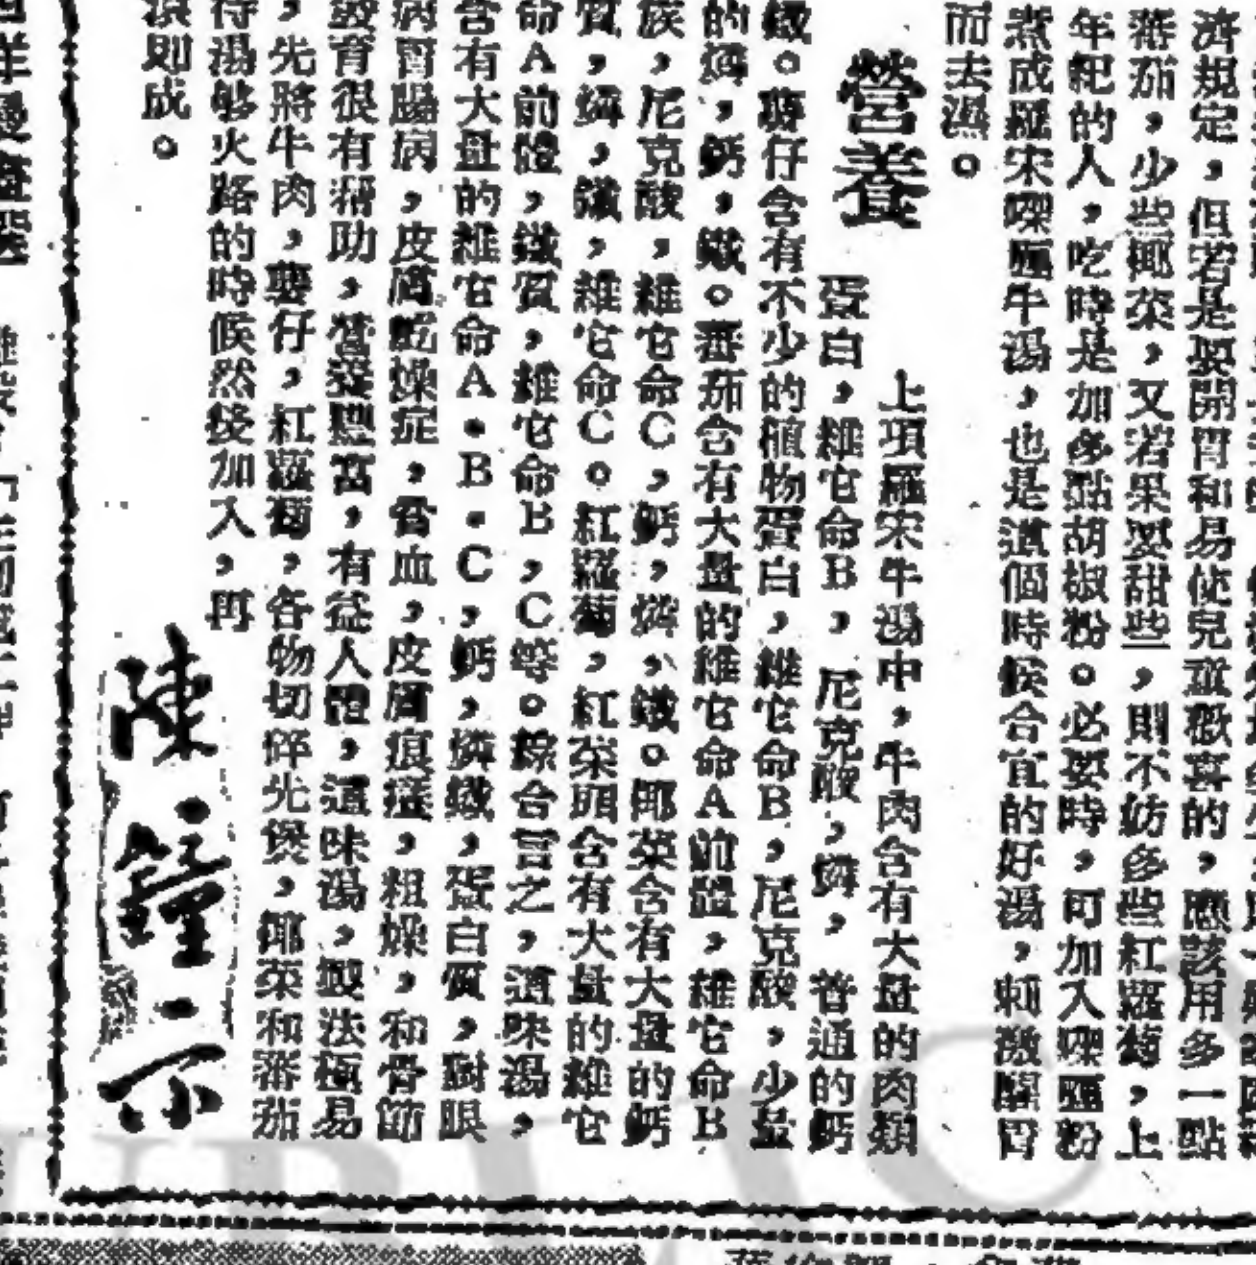 濟規定，但若是要開胃和易使兒童歡喜的，應該用多一點
蕃茄，少些椰菜，又若果要甜些，則不妨多些紅蘿蔔，上
年紀的人，吃時是加多點胡椒粉。必要時，可加入喱粉
煮成羅宋喱牛湯，也是這個時候合宜的好湯，刺激脾胃
而去濕。
營養
上項羅宋牛湯中，牛肉含有大量的肉類
蛋白，維它命B，尼克酸，燐，普通的鈣
鐵。薯仔含有不少的植物蛋白，維它命B，尼克酸，少量
的燐，鈣，鐵。蕃茄含有大量的維它命A前體，維它命B
族，尼克酸，維它命C，鈣，燐，鐵。椰菜含有大量的鈣
質，燐，鐵，維它命C。紅蘿蔔，紅菜頭含有大量的維它
命A前體，鐵質，維它命B，C等。綜合言之，這味湯，
含有大量的維它命A·B·C，鈣，燐鐵，蛋白質，對眼
病胃腸病，皮膚乾燥症，骨血，皮膚痕癢，粗燥，和骨節
發育很有帮助，營養豐富，有益人體，這味湯，製法極易
，先將牛肉，薯仔，紅蘿蔔，各物切好先煲，椰菜和蕃茄
待湯够火路的時候然後加入，再
滾則成。
陳鐘二示